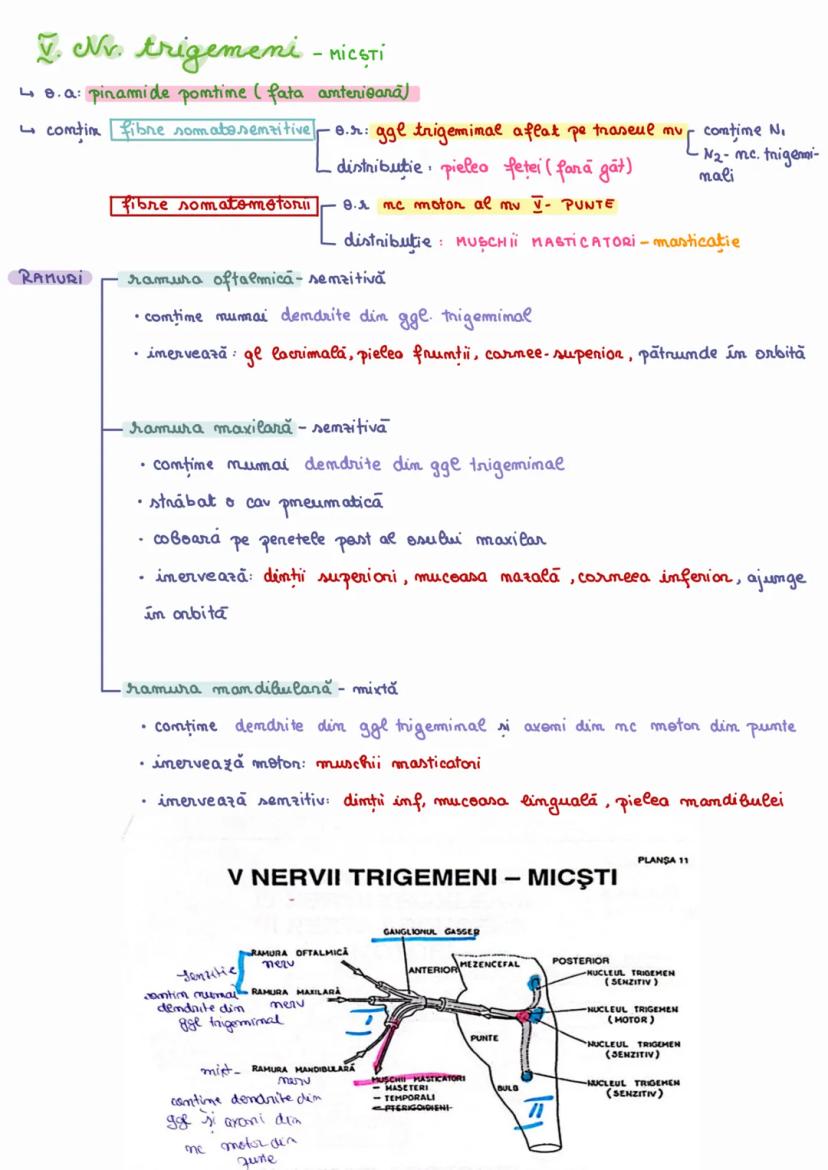 V. Nv. trigemeni - MICȘTI
↳ o.a: piramide pontine (fața anterioară)
↳ conțin fibre somatosenzitive o.r: ggl trigeminal aflat pe traseul nv conține N1
N2- nc. trigemi-
nali
distribuție: pielea feței (fără gât)
fibre somatomotorii o.r nc motor al nv V- PUNTE
distribuție: MUȘCHII MASTICATORI - masticație
RAMURI
ramura oftalmică - senzitivă
• conține numai dendrite din ggl. trigeminal
• inervează: gl lacrimală, pielea frunții, cornee-superior, pătrunde în orbită
ramura maxilară - senzitivă
• conține numai dendrite din ggl trigeminal
• străbat o cav pneumatică
• coboară pe peretele post al osului maxilar
• inervează: dinții superiori, mucoasa nazală, corneea inferior, ajunge
în orbită
ramura mandibulară - mixtă
• conține dendrite din ggl trigeminal și axoni din nc motor din punte
• inervează motor: muschii masticatori
• inervează senzitiv: dinții inf, mucoasa linguală, pielea mandibulei
PLANȘA 11
V NERVII TRIGEMENI – MICȘTI
GANGLIONUL GASSER
RAMURA OFTALMICĂ
nerv
senzitie
ANTERIOR
MEZENCEFAL
POSTERIOR
NUCLEUL TRIGEMEN
(SENZITIV)
RAMURA MAXILARĂ
nerv
contin numai
dendrite din
ggl trigeminal
I
NUCLEUL TRIGEMEN
(MOTOR)
PUNTE
NUCLEUL TRIGEMEN
(SENZITIV)
mixt- RAMURA MANDIBULARĂ
nerv
MUȘCHII MASTICATORI
- MASETERI
- TEMPORALI
- PTERIGOIDIENI
BULB
NUCLEUL TRIGEMEN
(SENZITIV)
II
conține dendrite din
ggl și axoni din
nc motor din
punte